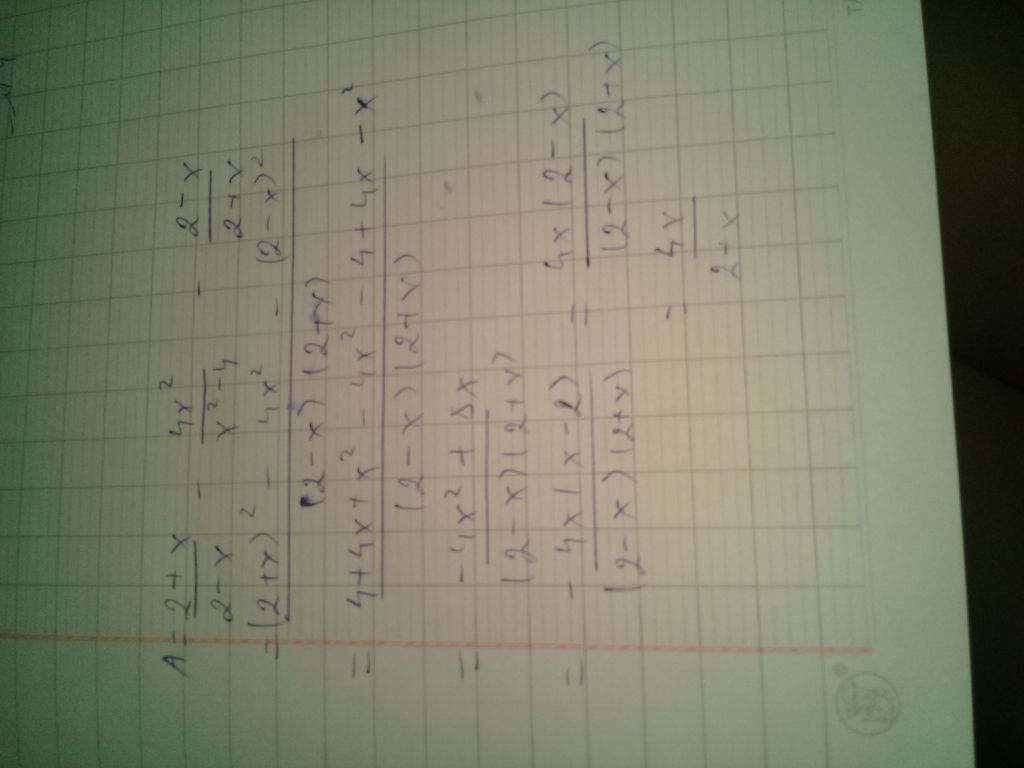 A = \frac{2+x}{2-x} - \frac{4x^2}{x^2-4} - \frac{2-x}{2+x}
= \frac{(2+x)^2 - 4x^2 - (2-x)^2}{(2-x)(2+x)}
= \frac{4+4x+x^2 - 4x^2 - 4+4x-x^2}{(2-x)(2+x)}
= \frac{-4x^2+8x}{(2-x)(2+x)}
= \frac{-4x(x-2)}{(2-x)(2+x)} = \frac{4x(2-x)}{(2-x)(2+x)}
= \frac{4x}{2+x}